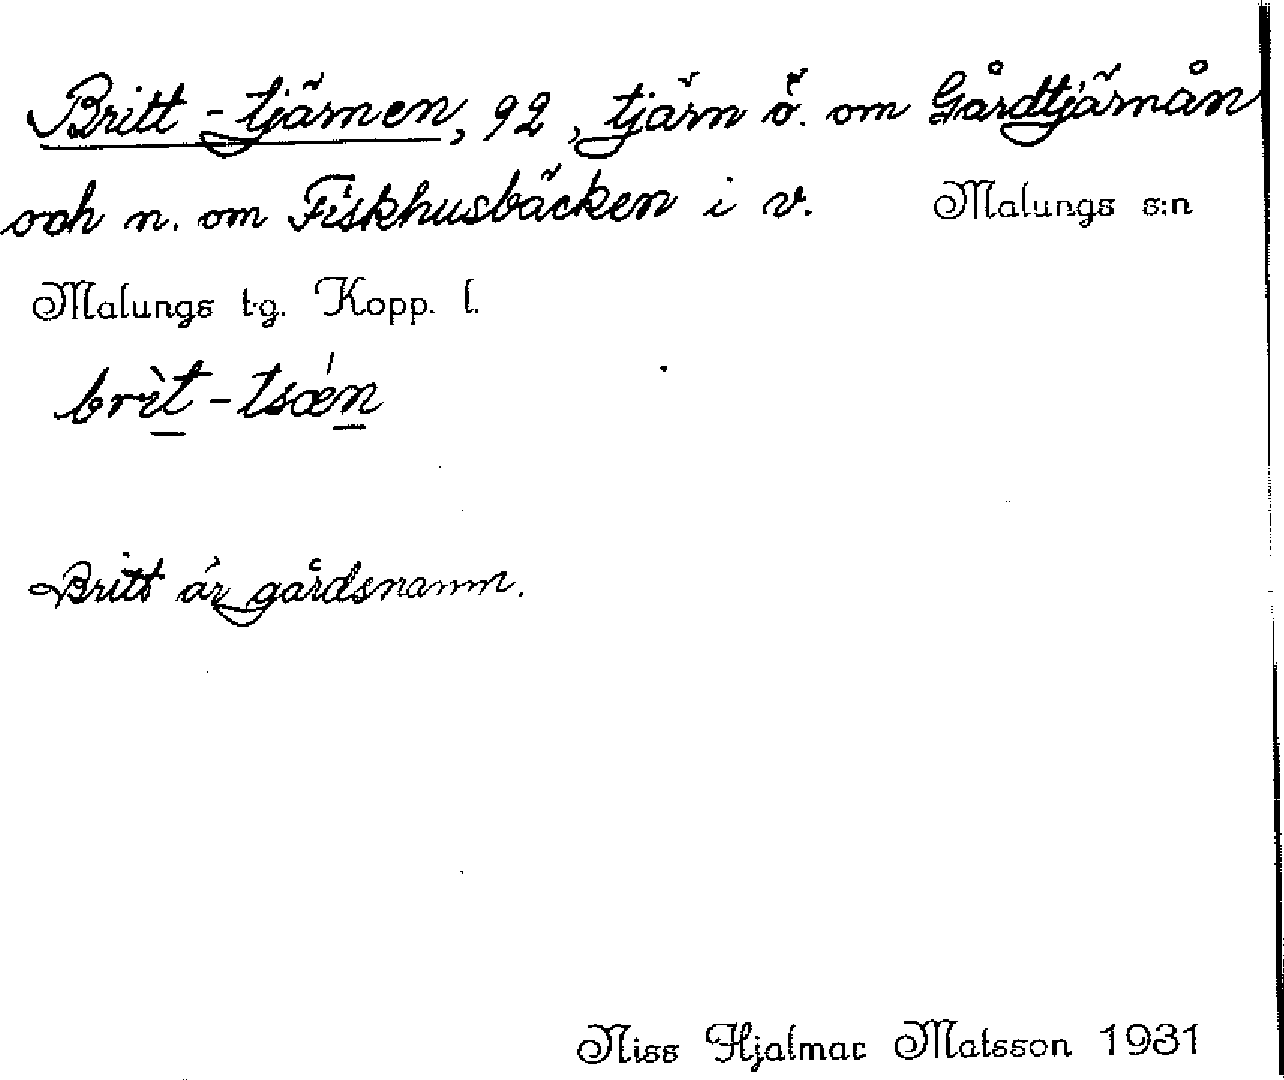 Britt-tjärnen, 92, tjärn ö. om Gårdtjärnån
och n. om Fiskhusbäcken i v. Malungs s:n
Malungs tg. Kopp. l.
brìt-tsǽn
Britt är gårdsnamn.
Niss Hjalmar Matsson 1931